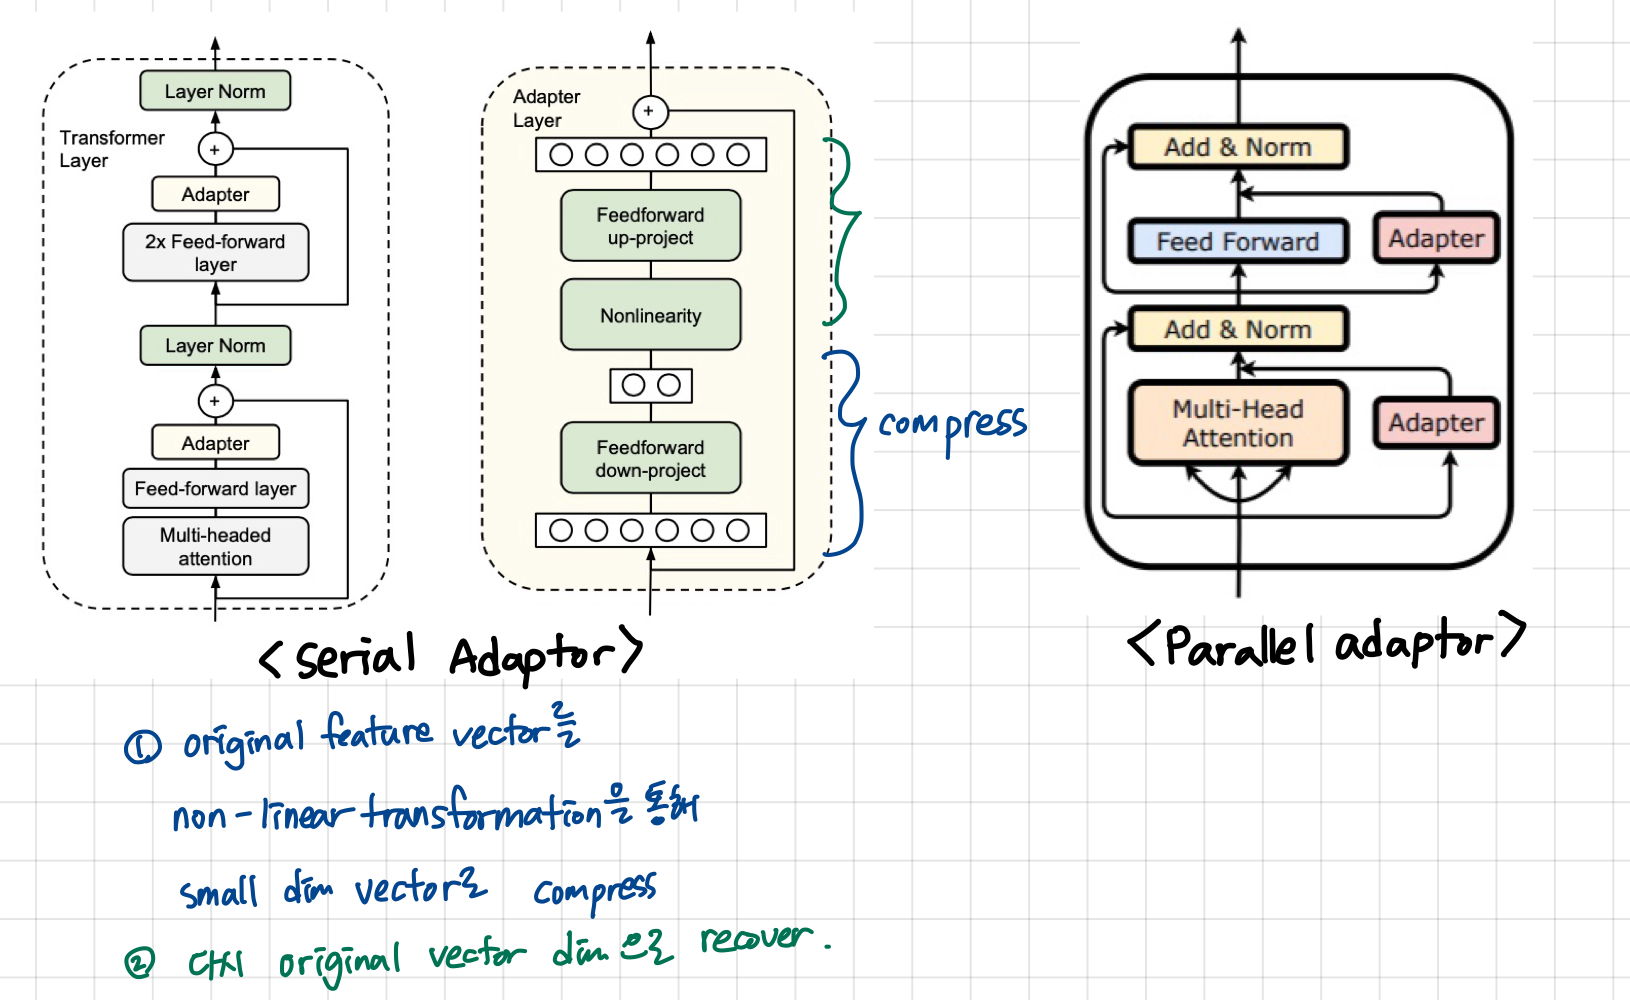 Layer Norm
Transformer
Layer
+
Adapter
2x Feed-forward
layer
Layer Norm
+
Adapter
Feed-forward layer
Multi-headed
attention
Adapter
Layer
+
Feedforward
up-project
Nonlinearity
Feedforward
down-project
compress
Add & Norm
Feed Forward
Adapter
Add & Norm
Multi-Head
Attention
Adapter
<serial Adaptor>
<Parallel adaptor>
① original feature vector를
non-linear transformation을 통해
small dim vector로 compress
② 다시 original vector dim으로 recover.